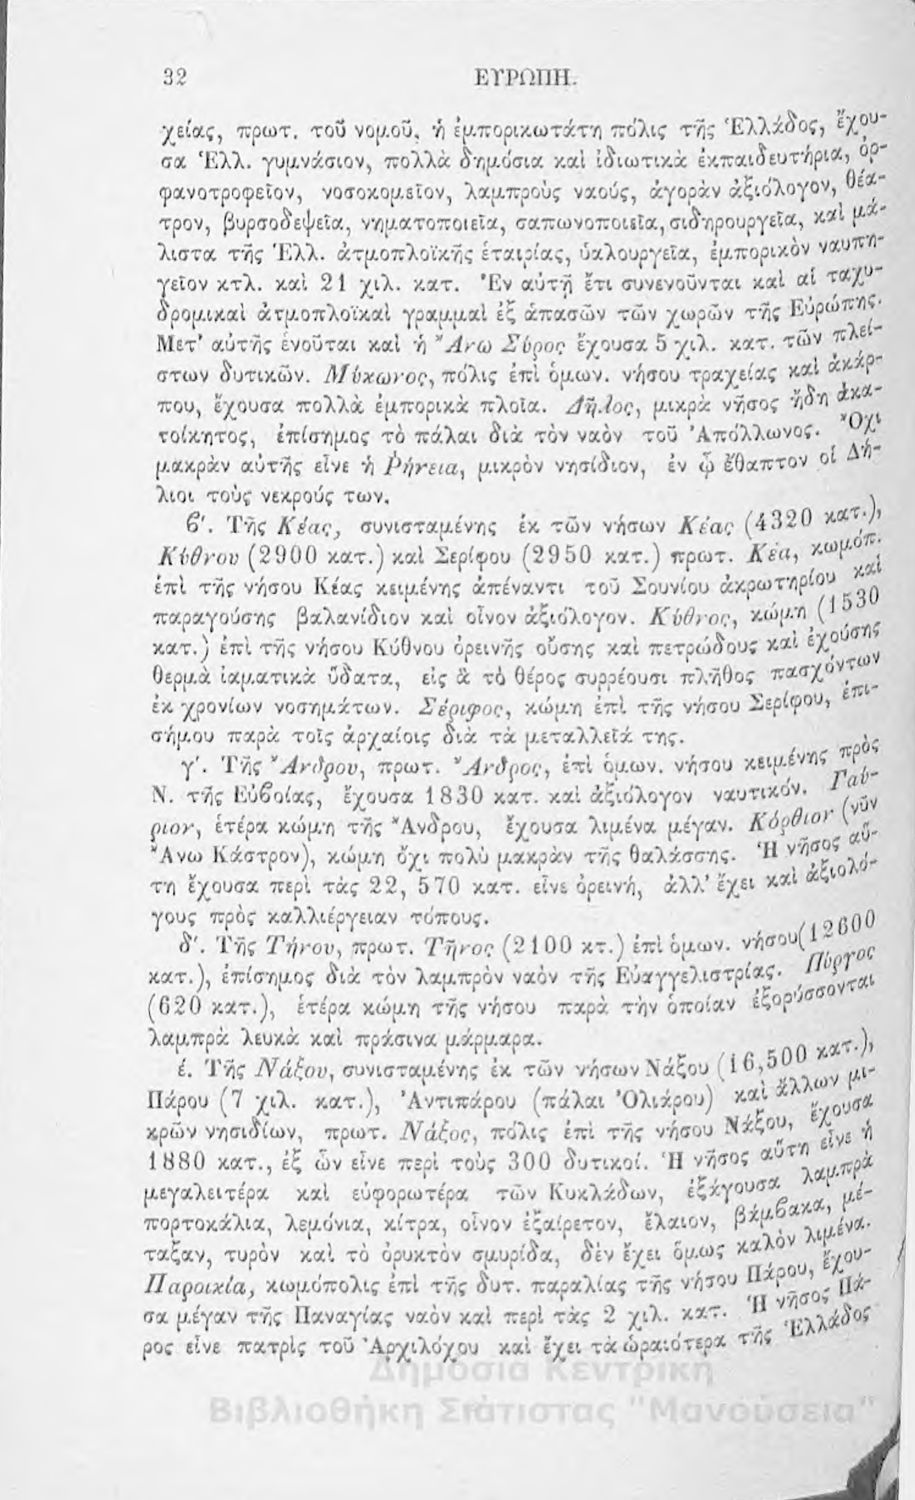 32 ΕΥΡΩΠΗ.
χείας, πρωτ. τοῦ νομοῦ, ἡ ἐμπορικωτάτη πόλις τῆς Ἑλλάδος, ἔχου-
σα Ἑλλ. γυμνάσιον, πολλὰ δημόσια καὶ ἰδιωτικὰ ἐκπαιδευτήρια, ὀρ-
φανοτροφεῖον, νοσοκομεῖον, λαμπροὺς ναούς, ἀγορὰν ἀξιόλογον, θέα-
τρον, βυρσοδεψεῖα, νηματοποιεῖα, σαπωνοποιεῖα, σιδηρουργεῖα, καὶ μά-
λιστα τῆς Ἑλλ. ἀτμοπλοϊκῆς ἑταιρίας, ὑαλουργεῖα, ἐμπορικὸν ναυπη-
γεῖον κτλ. καὶ 21 χιλ. κατ. Ἐν αὐτῇ ἔτι συνενοῦνται καὶ αἱ ταχυ-
δρομικαὶ ἀτμοπλοϊκαὶ γραμμαὶ ἐξ ἁπασῶν τῶν χωρῶν τῆς Εὐρώπης.
Μετ' αὐτῆς ἑνοῦται καὶ ἡ Ἄνω Σύρος ἔχουσα 5 χιλ. κατ. τῶν πλεί-
στων δυτικῶν. Μύκωνος, πόλις ἐπὶ ὁμων. νήσου τραχείας καὶ ἀκάρ-
που, ἔχουσα πολλὰ ἐμπορικὰ πλοῖα. Δῆλος, μικρὰ νῆσος ἤδη ἀκα-
τοίκητος, ἐπίσημος τὸ πάλαι διὰ τὸν ναὸν τοῦ Ἀπόλλωνος. Ὄχι
μακρὰν αὐτῆς εἶνε ἡ Ῥήνεια, μικρὸν νησίδιον, ἐν ᾧ ἔθαπτον οἱ Δή-
λιοι τοὺς νεκρούς των.
ϐ'. Τῆς Κέας, συνισταμένης ἐκ τῶν νήσων Κέας (4320 κατ.),
Κύθνου (2900 κατ.) καὶ Σερίφου (2950 κατ.) πρωτ. Κέα, κωμόπ.
ἐπὶ τῆς νήσου Κέας κειμένης ἀπέναντι τοῦ Σουνίου ἀκρωτηρίου καὶ
παραγούσης βαλανίδιον καὶ οἶνον ἀξιόλογον. Κύθνος, κώμη (1530
κατ.) ἐπὶ τῆς νήσου Κύθνου ὀρεινῆς οὔσης καὶ πετρώδους καὶ ἐχούσης
θερμὰ ἰαματικὰ ὕδατα, εἰς ἃ τὸ θέρος συρρέουσι πλῆθος πασχόντων
ἐκ χρονίων νοσημάτων. Σέριφος, κώμη ἐπὶ τῆς νήσου Σερίφου, ἐπι-
σήμου παρὰ τοῖς ἀρχαίοις διὰ τὰ μεταλλεῖά της.
γ'. Τῆς Ἄνδρου, πρωτ. Ἄνδρος, ἐπὶ ὁμων. νήσου κειμένης πρὸς
Ν. τῆς Εὐϐοίας, ἔχουσα 1830 κατ. καὶ ἀξιόλογον ναυτικόν. Γαύ-
ριον, ἑτέρα κώμη τῆς Ἄνδρου, ἔχουσα λιμένα μέγαν. Κόρθιον (νῦν
Ἄνω Κάστρον), κώμη ὄχι πολὺ μακρὰν τῆς θαλάσσης. Ἡ νῆσος αὕ-
τη ἔχουσα περὶ τὰς 22, 570 κατ. εἶνε ὀρεινή, ἀλλ' ἔχει καὶ ἀξιολό-
γους πρὸς καλλιέργειαν τόπους.
δ'. Τῆς Τήνου, πρωτ. Τῆνος (2100 κτ.) ἐπὶ ὁμων. νήσου (12600
κατ.), ἐπίσημος διὰ τὸν λαμπρὸν ναὸν τῆς Εὐαγγελιστρίας. Πύργος
(620 κατ.), ἑτέρα κώμη τῆς νήσου παρὰ τὴν ὁποίαν ἐξορύσσονται
λαμπρὰ λευκὰ καὶ πράσινα μάρμαρα.
έ. Τῆς Νάξου, συνισταμένης ἐκ τῶν νήσων Νάξου (16,500 κατ.),
Πάρου (7 χιλ. κατ.), Ἀντιπάρου (πάλαι Ὀλιάρου) καὶ ἄλλων μι-
κρῶν νησιδίων, πρωτ. Νάξος, πόλις ἐπὶ τῆς νήσου Νάξου, ἔχουσα
1880 κατ., ἐξ ὧν εἶνε περὶ τοὺς 300 δυτικοί. Ἡ νῆσος αὕτη εἶνε ἡ
μεγαλειτέρα καὶ εὐφορωτέρα τῶν Κυκλάδων, ἐξάγουσα λαμπρὰ
πορτοκάλια, λεμόνια, κίτρα, οἶνον ἐξαίρετον, ἔλαιον, βάμϐακα, μέ-
ταξαν, τυρὸν καὶ τὸ ὀρυκτὸν σμυρίδα, δὲν ἔχει ὅμως καλὸν λιμένα.
Παροικία, κωμόπολις ἐπὶ τῆς δυτ. παραλίας τῆς νήσου Πάρου, ἔχου-
σα μέγαν τῆς Παναγίας ναὸν καὶ περὶ τὰς 2 χιλ. κατ. Ἡ νῆσος Πά-
ρος εἶνε πατρὶς τοῦ Ἀρχιλόχου καὶ ἔχει τὰ ὡραιότερα τῆς Ἑλλάδος
Δημόσια Κεντρική
Βιβλιοθήκη Σιάτιστας "Μανούσεια"